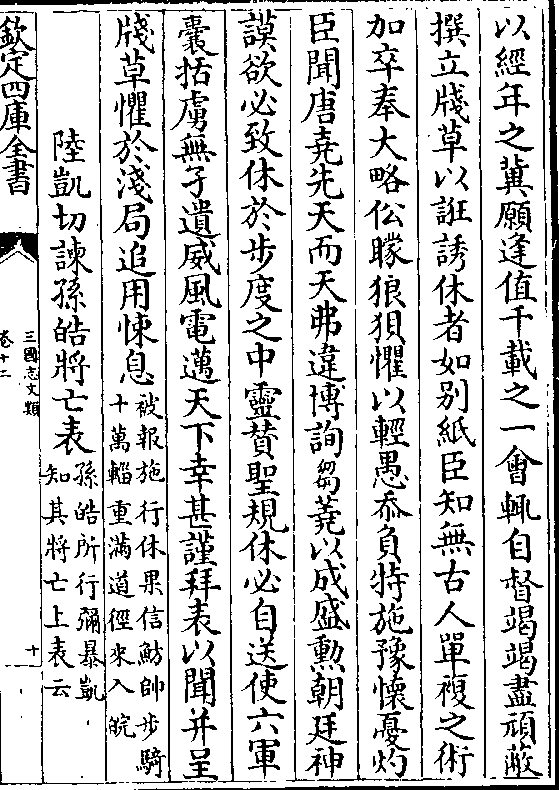 以經年之冀願逢值千載之一會輒自督竭竭盡頑蔽
撰立牋草以誑誘休者如别紙臣知無古人單複之術
加卒奉大略伀矇狼狽懼以輕愚忝負特施豫懷憂灼
臣聞唐堯先天而天弗違博詢芻蕘以成盛勲朝廷神
謨欲必致休於步度之中靈賛聖規休必自送使六軍
囊括虜無孑遺威風電邁天下幸甚謹拜表以聞并呈
牋草懼於淺局追用悚息
被報施行休果信魴帥步騎
十萬輜重滿道徑來入皖
陸凱切諫孫皓將亡表
孫皓所行彌暴凱
知其將亡上表云
欽定四庫全書
三國志文類
卷十二
十